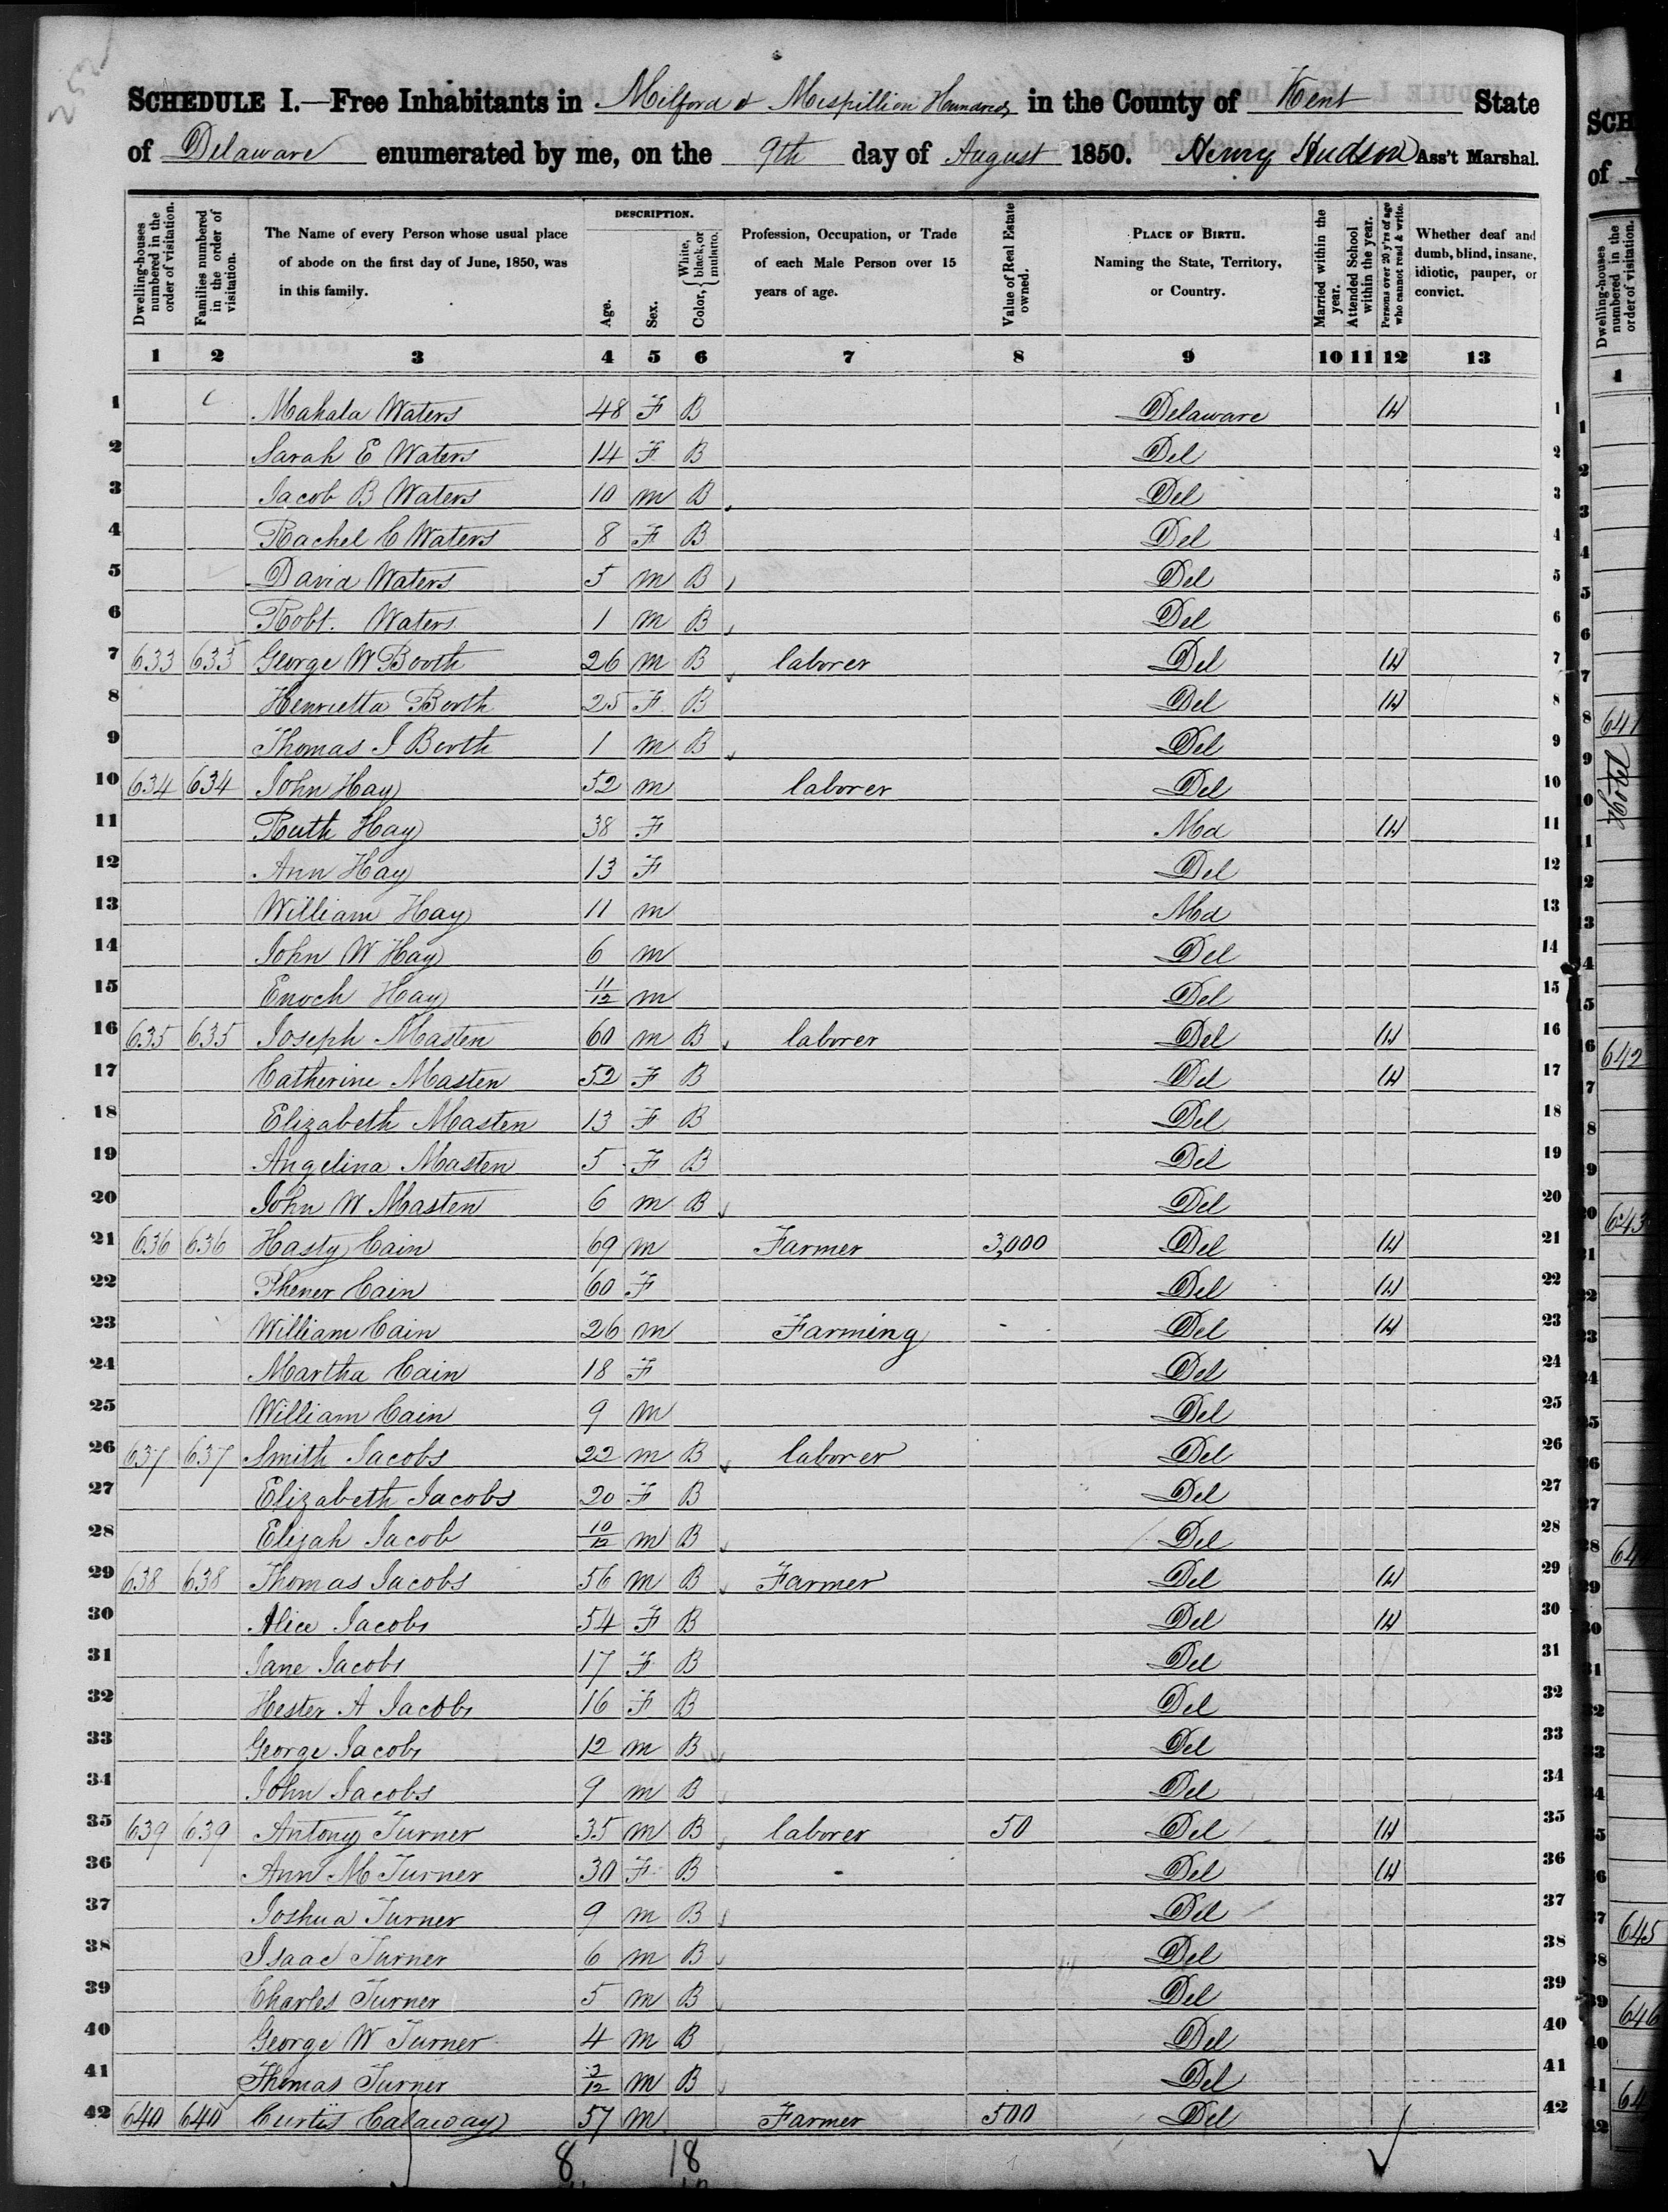 SCHEDULE I.—Free Inhabitants in Milford & Mispillion Hundreds, in the County of Kent State
of Delaware enumerated by me, on the 9th day of August 1850. Henry Hudson Ass't Marshal.
Dwelling-houses numbered in the order of visitation. Families numbered in the order of visitation. The Name of every Person whose usual place of abode on the first day of June, 1850, was in this family. DESCRIPTION. Age. Sex. Color, White, black, or mulatto. Profession, Occupation, or Trade of each Male Person over 15 years of age. Value of Real Estate owned. PLACE OF BIRTH. Naming the State, Territory, or Country. Married within the year. Attended School within the year. Persons over 20 y'rs of age who cannot read & write. Whether deaf and dumb, blind, insane, idiotic, pauper, or convict.
1 2 3 4 5 6 7 8 9 10 11 12 13
1 Mahala Waters 48 F B Delaware 1
2 Sarah E Waters 14 F B Del 2
3 Jacob B Waters 10 m B Del 3
4 Rachel C Waters 8 F B Del 4
5 David Waters 5 m B Del 5
6 Robt. Waters 1 m B Del 6
7 633 633 George W Booth 26 m B laborer Del 7
8 Henrietta Booth 25 F B Del 8
9 Thomas J Booth 1 m B Del 9
10 634 634 John Hay 52 m laborer Del 10
11 Ruth Hay 38 F Md 11
12 Ann Hay 13 F Del 12
13 William Hay 11 m Md 13
14 John W Hay 6 m Del 14
15 Enoch Hay 11/12 m Del 15
16 635 635 Joseph Masten 60 m B laborer Del 16
17 Catherine Masten 52 F B Del 17
18 Elizabeth Masten 13 F B Del 18
19 Angelina Masten 5 F B Del 19
20 John W Masten 6 m B Del 20
21 636 636 Hasty Cain 69 m Farmer 3,000 Del 21
22 Phener Cain 60 F Del 22
23 William Cain 26 m Farming Del 23
24 Martha Cain 18 F Del 24
25 William Cain 9 m Del 25
26 637 637 Smith Jacobs 22 m B laborer Del 26
27 Elizabeth Jacobs 20 F B Del 27
28 Elijah Jacob 10/12 m B Del 28
29 638 638 Thomas Jacobs 56 m B Farmer Del 29
30 Alice Jacobs 54 F B Del 30
31 Jane Jacobs 17 F B Del 31
32 Hester A Jacobs 16 F B Del 32
33 George Jacobs 12 m B Del 33
34 John Jacobs 9 m B Del 34
35 639 639 Antony Turner 35 m B laborer 50 Del 35
36 Ann M Turner 30 F B Del 36
37 Joshua Turner 9 m B Del 37
38 Isaac Turner 6 m B Del 38
39 Charles Turner 5 m B Del 39
40 George W Turner 4 m B Del 40
41 Thomas Turner 3/12 m B Del 41
42 640 640 Curtis Calaway 57 m Farmer 500 Del 42
8 18